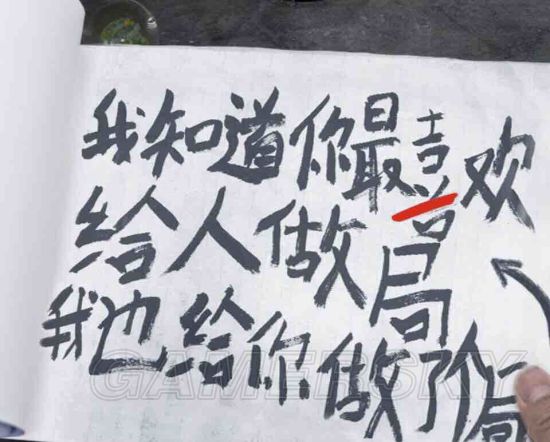 我知道你最喜欢
给人做局
我也给你做了局
GAMERSKY